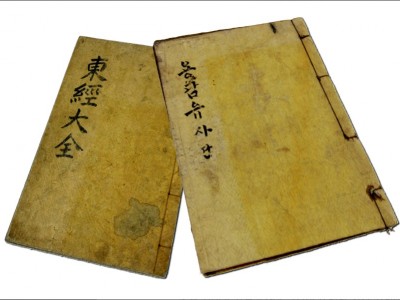 東經大全
용담유사